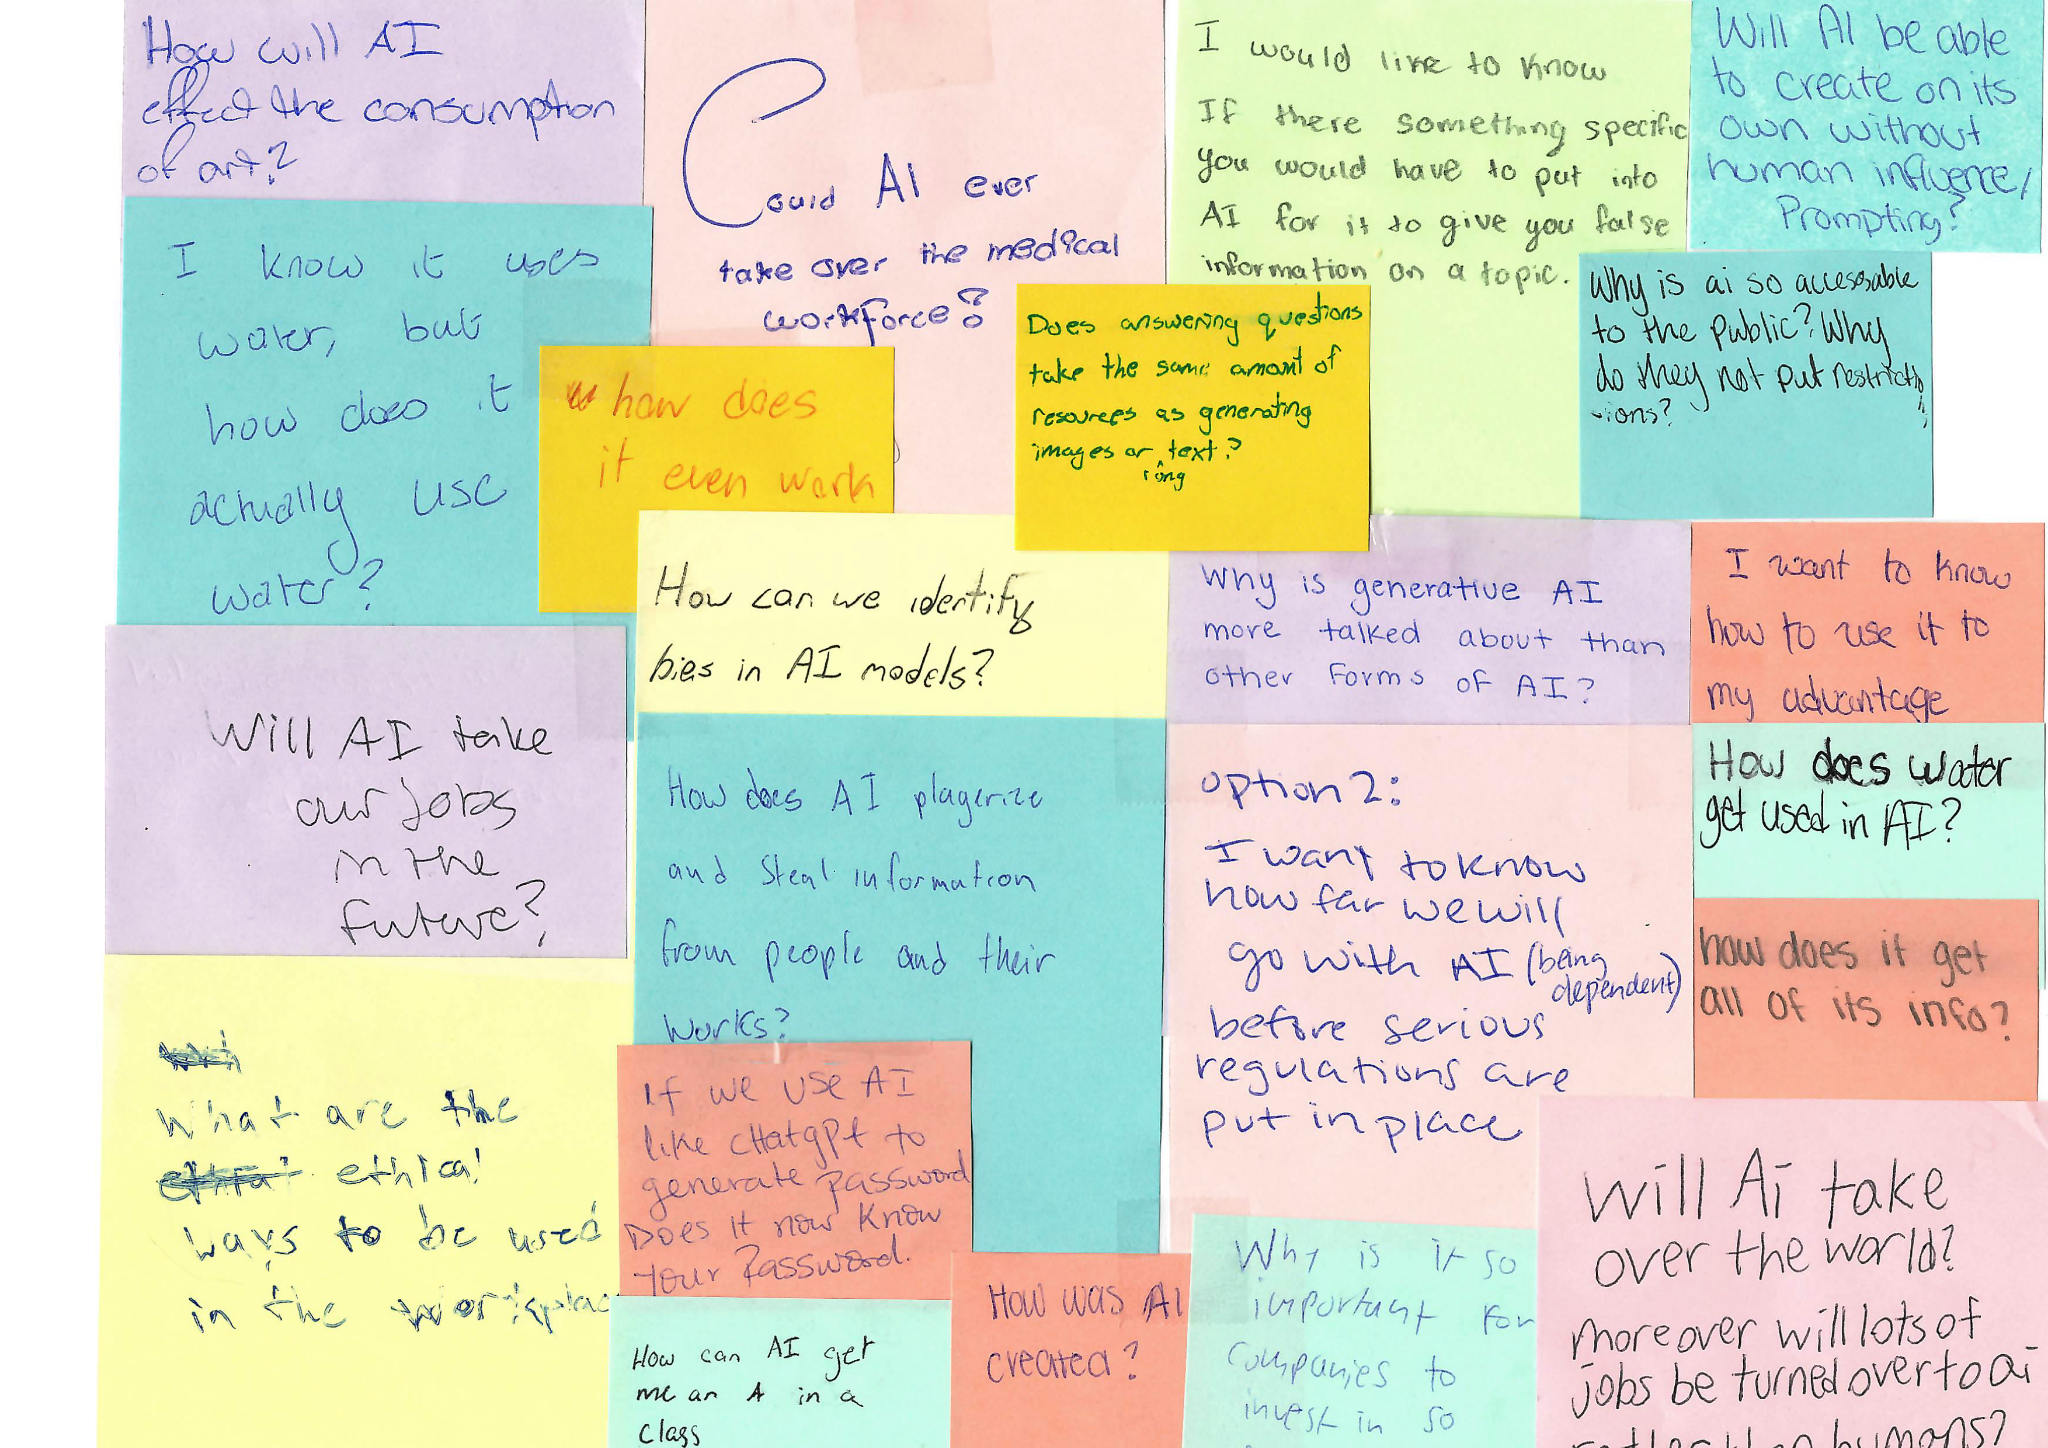 How will AI
effect the consumption
of art?
Could AI ever
take over the medical
workforce?
I would like to know
If there something specific
you would have to put into
AI for it to give you false
information on a topic.
Will AI be able
to create on its
own without
human influence/
Prompting?
I know it uses
water, but
how does it
actually use
water?
how does
it even work
Does answering questions
take the same amount of
resources as generating
images or text?
long
Why is ai so accessable
to the public? Why
do they not put restricti
-ions?
How can we identify
bies in AI models?
Why is generative AI
more talked about than
other forms of AI?
I want to know
how to use it to
my advantage
Will AI take
our jobs
in the
future?
How does AI plagerize
and steal information
from people and their
works?
option 2:
I want to know
how far we will
go with AI (being
dependent)
before serious
regulations are
put in place
How does water
get used in AI?
how does it get
all of its info?
What are the
ethical
ways to be used
in the workplac
If we use AI
like cHatgpt to
generate password
Does it now know
your Password.
How can AI get
me an A in a
class
How was AI
created?
Why is it so
important for
companies to
invest in so
Will Ai take
over the world?
moreover will lots of
jobs be turned over to ai
rather than humans?